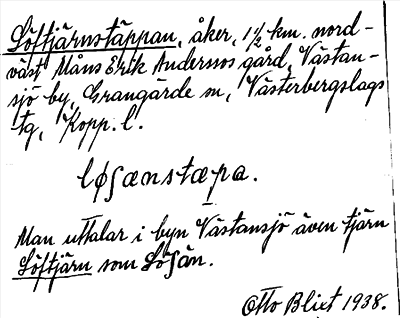 Löftjärnstäppan, åker, 1½ km. nord-
väst Måns Erik Andersos gård, Västan-
sjö by, Grangärde sn, Västerbergslags
tg, Kopp. l.
løʃænstæpa.
Man uttalar i byn Västansjö även tjärn
Löftjärn som Löʃän.
Otto Blixt 1938.